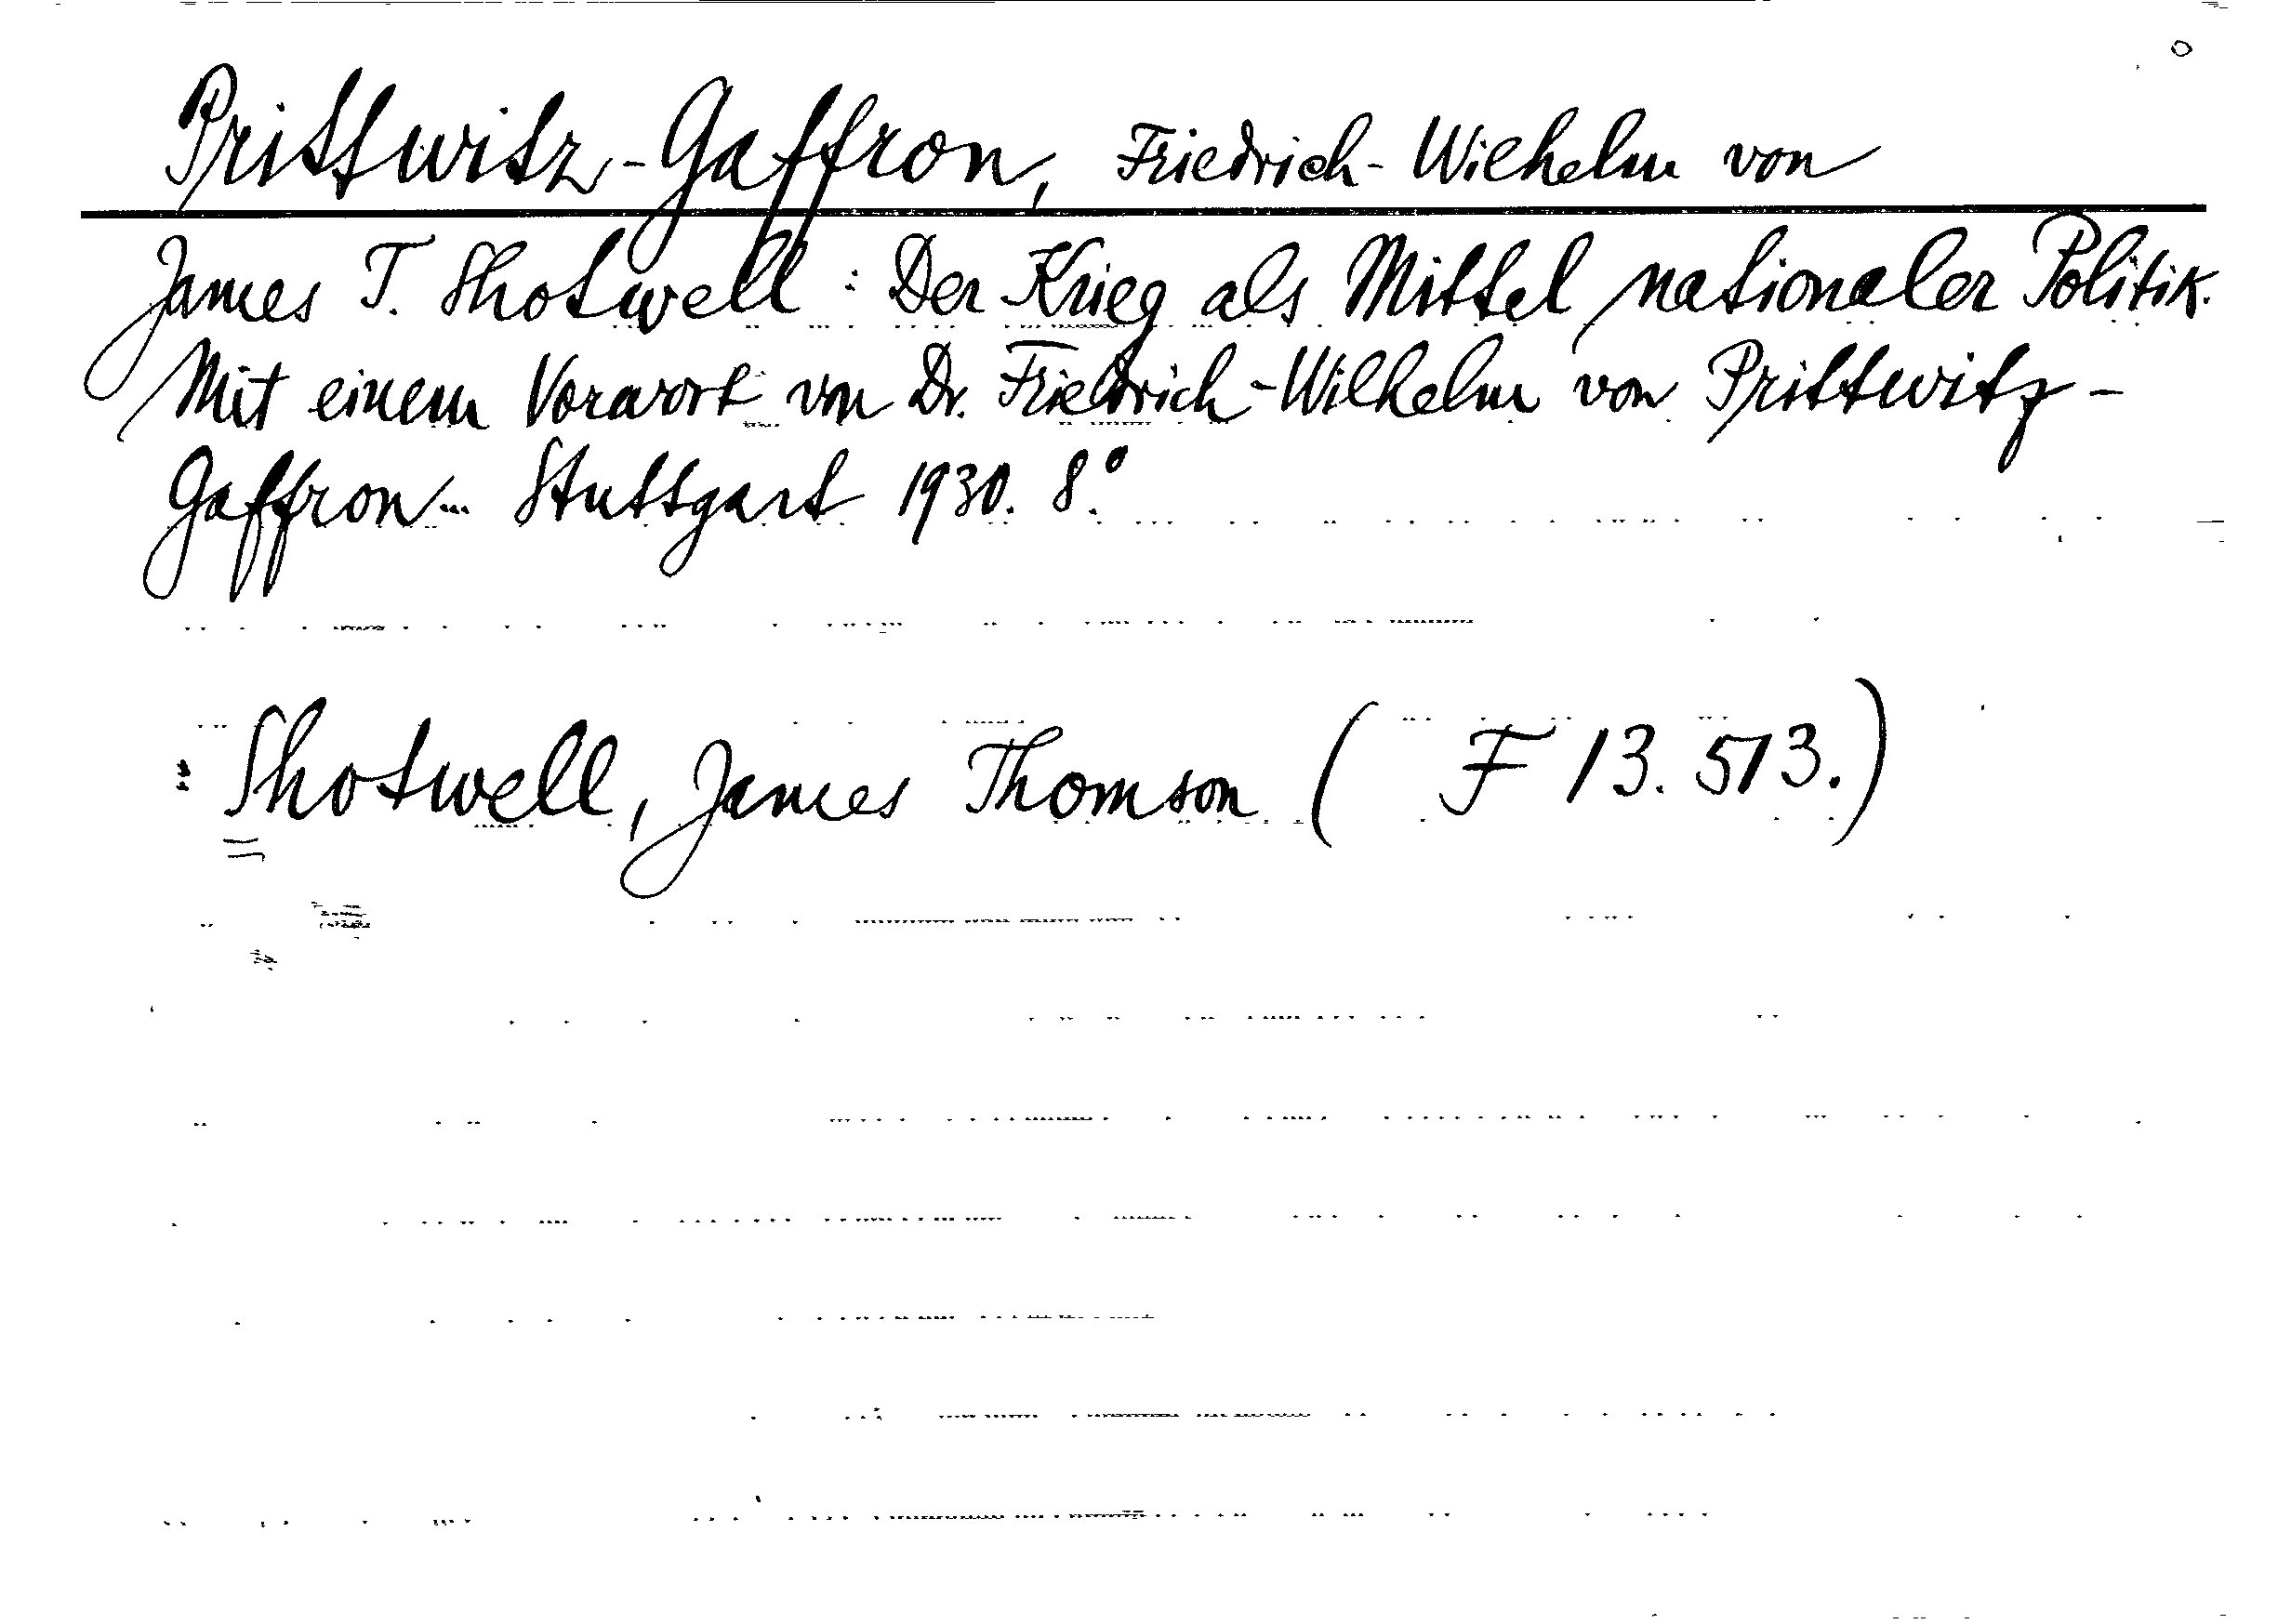 Prittwitz-Gaffron, Friedrich-Wilhelm von
James T. Shotwell: Der Krieg als Mittel nationaler Politik.
Mit einem Vorwort von Dr. Friedrich-Wilhelm von Prittwitz-
Gaffron... Stuttgart 1930. 8.°
: Shotwell, James Thomson ( F 13. 513.)